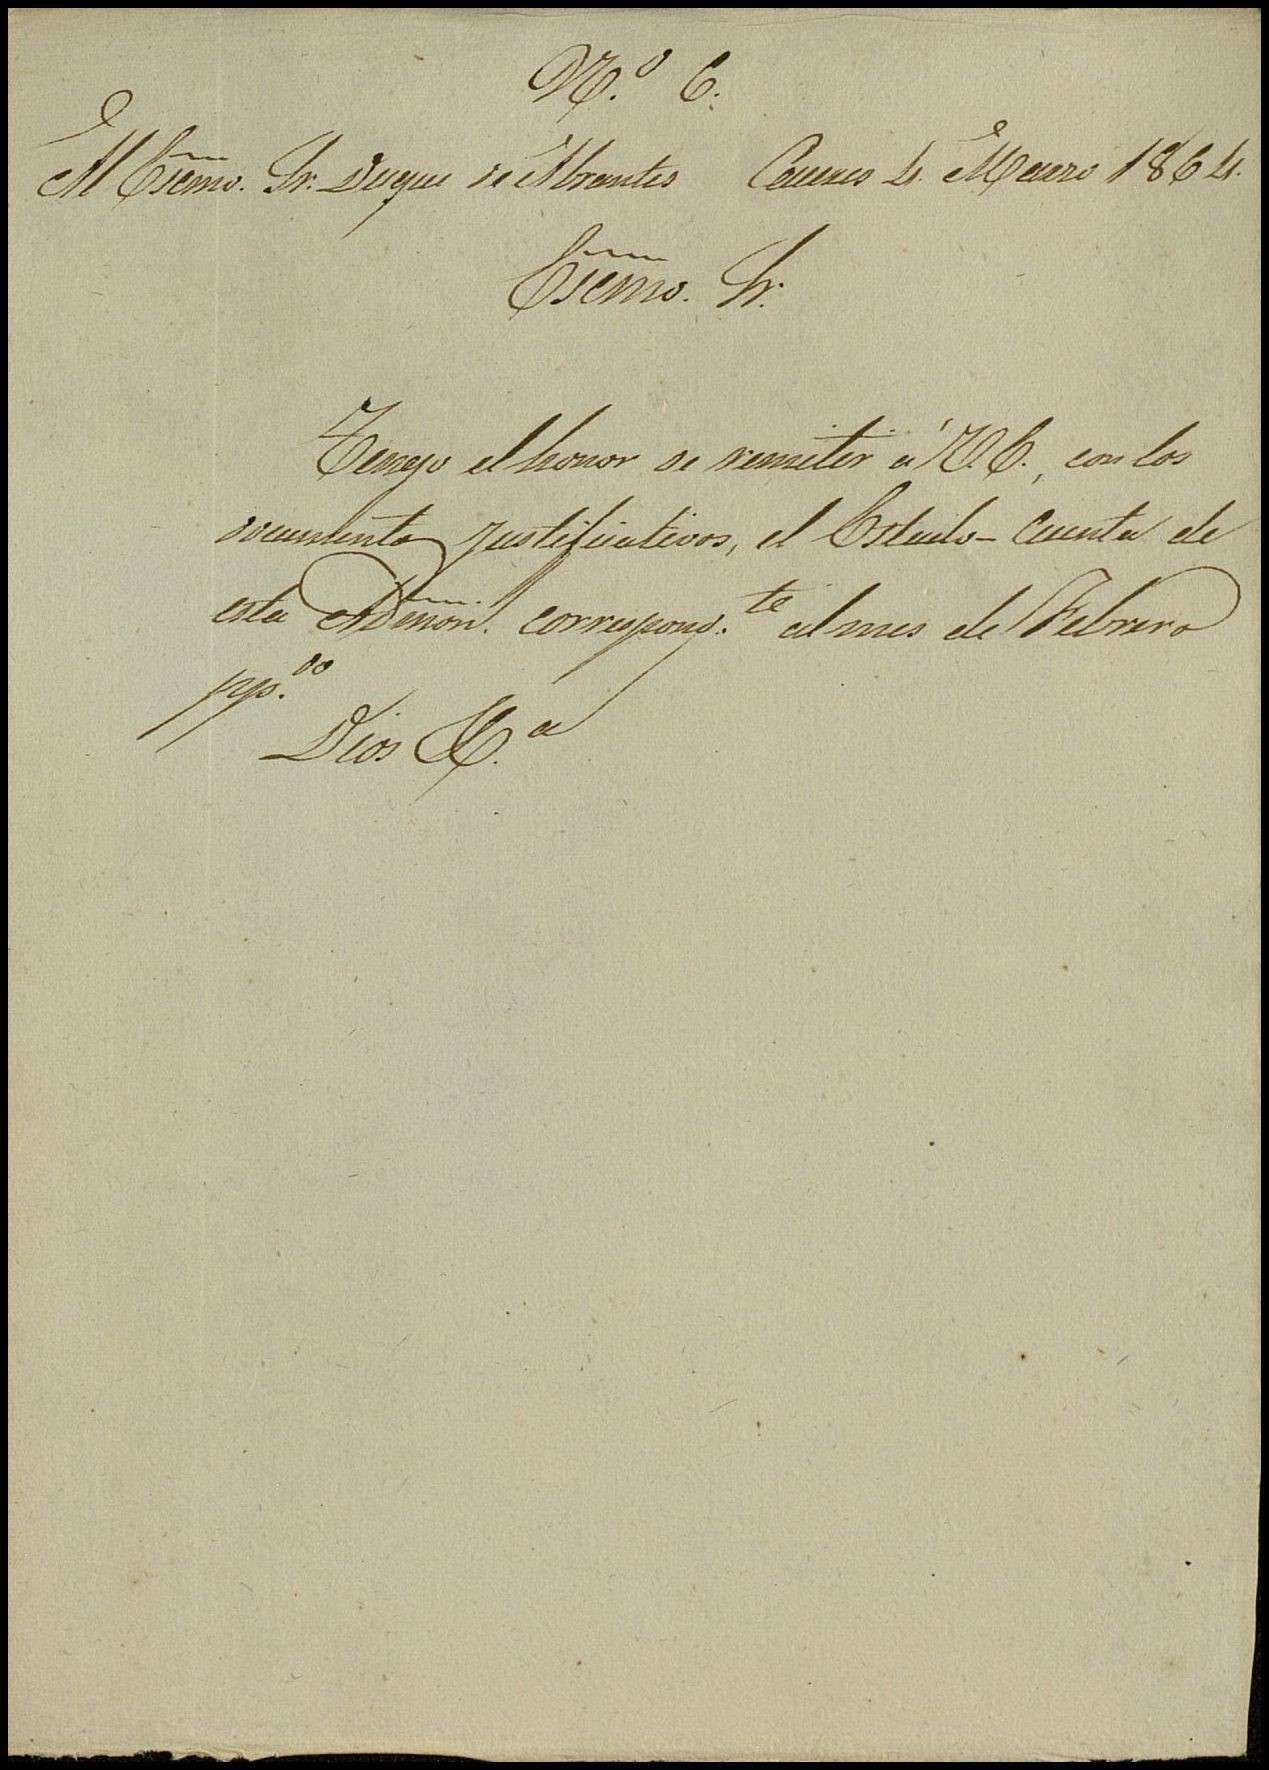 N.º 6.
Al Esemo. Sr. Duque de Abrantes Caceres 4. Marzo 1864.
Esemo. Sr.
Tengo el honor de remitir á V.E., con los
documentos justificativos, el Estado-Cuenta de
esta Admon. correspond.te al mes de Febrero
pp.do
Dios &.a